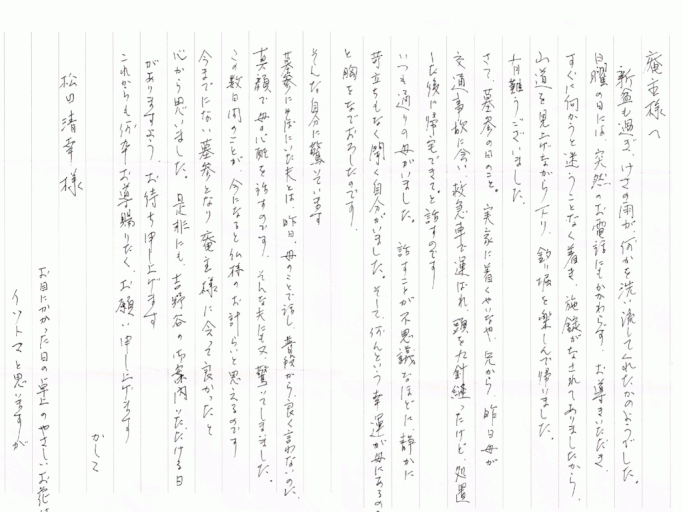 庵主様へ
新盆も過ぎ、けさの雨が、何かを洗い流してくれたかのようでした。
日曜の日には、突然のお電話にもかかわらず、お導きいただき、
すぐに何かうと迷うことなく着き、施錠がなされてありましたから、
山道を見上げながら下り、釣り堀を楽しんで帰りました。
有難うございました。
さて、墓参の日のこと。実家に着くやいなや、兄から、昨日母が
交通事故に会い、救急車で運ばれ、頭を九針縫ったけど、処置
した後に帰宅できてと話すのです
いつも通りの母がいました。話すことが不思議なほどに、静かに
苛立ちもなく聞く自分がいました。そして、何んという幸運が母にあるの
と胸をなでおろしたのです。
そんな自分に驚いています
墓参にそばにいた夫とは、昨日、母のことで話し、普段から、良く言わないのに、
真顔で母の心配を話すのです。そんな夫にも又、驚いてしまいました。
この数日間のことが、今になると仏様のお計らいと思えるのです
今までにない墓参となり、庵主様に会って良かったと
心から思いました。是非にも、吉野谷の御案内いただける日
がありますよう、お待ち申し上げます
これからも何卒お導き賜りたく、お願い申し上げます
かしこ
松田清幸様
お目にかかった日の卓上のやさしいお花は
イソトマと思いますが